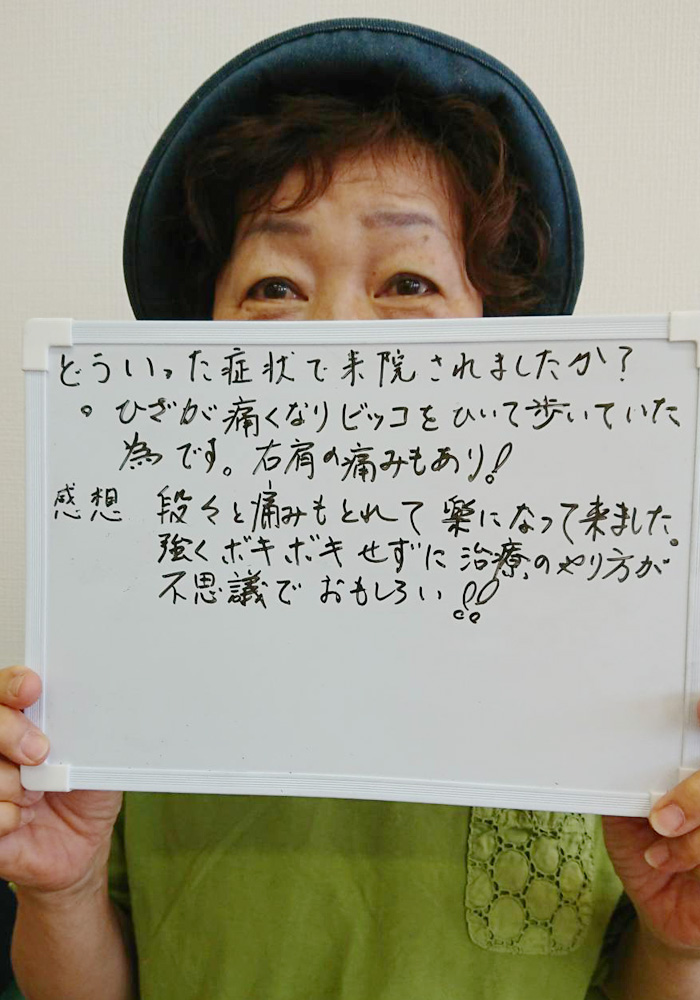 どういった症状で来院されましたか？
。ひざが痛くなりビッコをひいて歩いていた
為です。右肩の痛みもあり！
感想 段々と痛みもとれて楽になって来ました。
強くボキボキせずに治療のやり方が
不思議でおもしろい!!